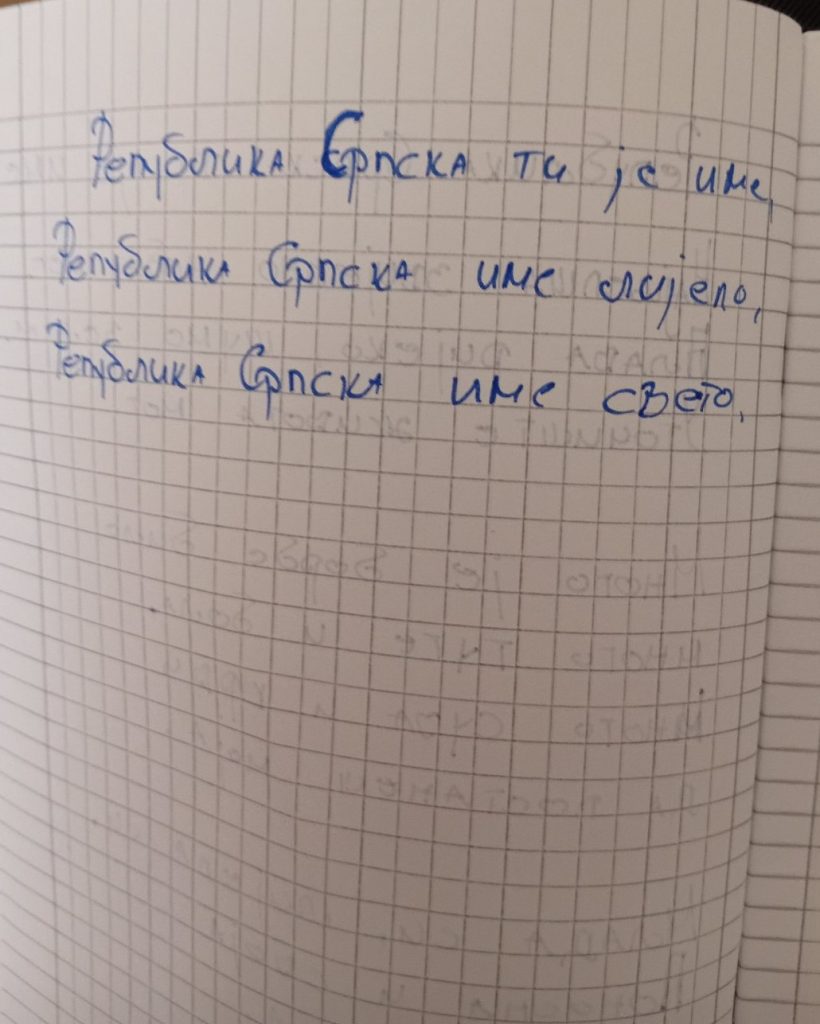 Република Српска ти је име,
Република Српска име лијепо,
Република Српска име свето,